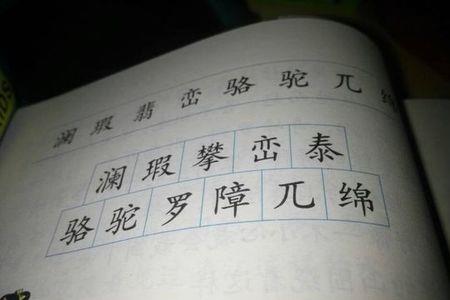 澜 瑕 翡 峦 骆 驼 兀 绵
澜瑕攀峦泰
骆驼罗障兀绵